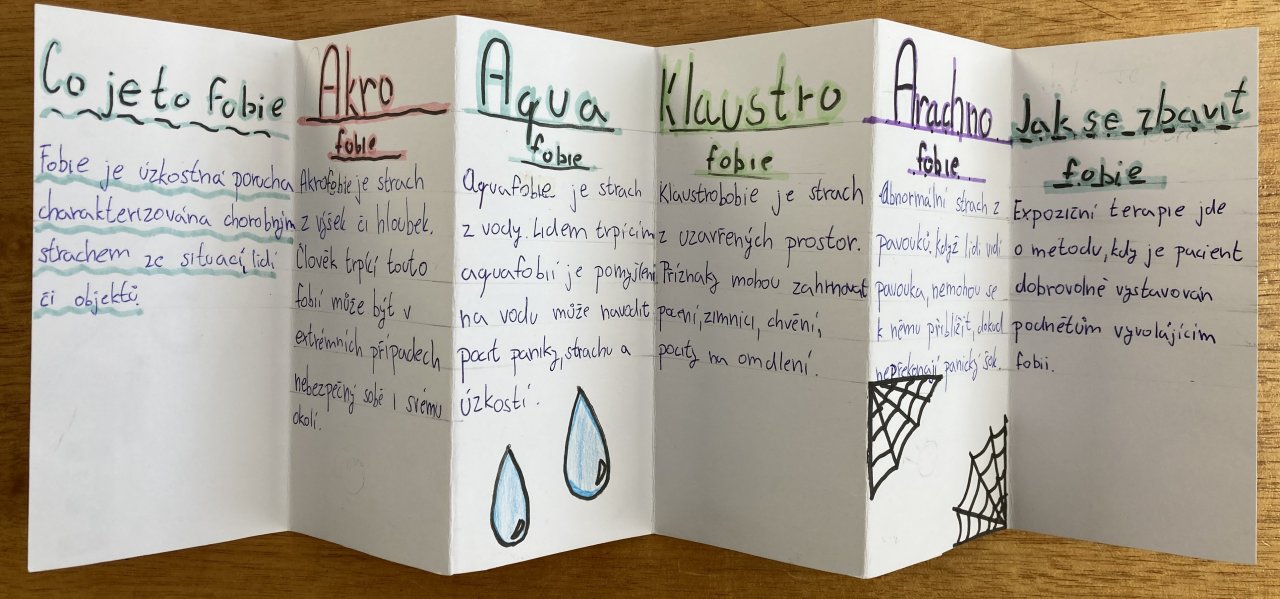 Co je to fobie
Fobie je úzkostná porucha
charakterizována chorobným
strachem ze situací, lidí
či objektů.
Akro
fobie
Akrofobie je strach
z výšek či hloubek.
Člověk trpící touto
fobií může být v
extrémních případech
nebezpečný sobě i svému
okolí.
Aqua
fobie
Aquafobie je strach
z vody. Lidem trpícím
aquafobií je pomyšlení
na vodu může navodit
pocit paniky, strachu a
úzkostí.
Klaustro
fobie
Klaustrobobie je strach
z uzavřených prostor.
Příznaky mohou zahrnovat
pocení, zimnici, chvění,
pocity na omdlení.
Arachno
fobie
Abnormální strach z
pavouků. když lidi vidí
pavouka, nemohou se
k němu přiblížit, dokud
nepřekonají panický šok.
Jak se zbavit
fobie
Expoziční terapie jde
o metodu, kdy je pacient
dobrovolně vystavován
podnětům vyvolájícím
fobii.